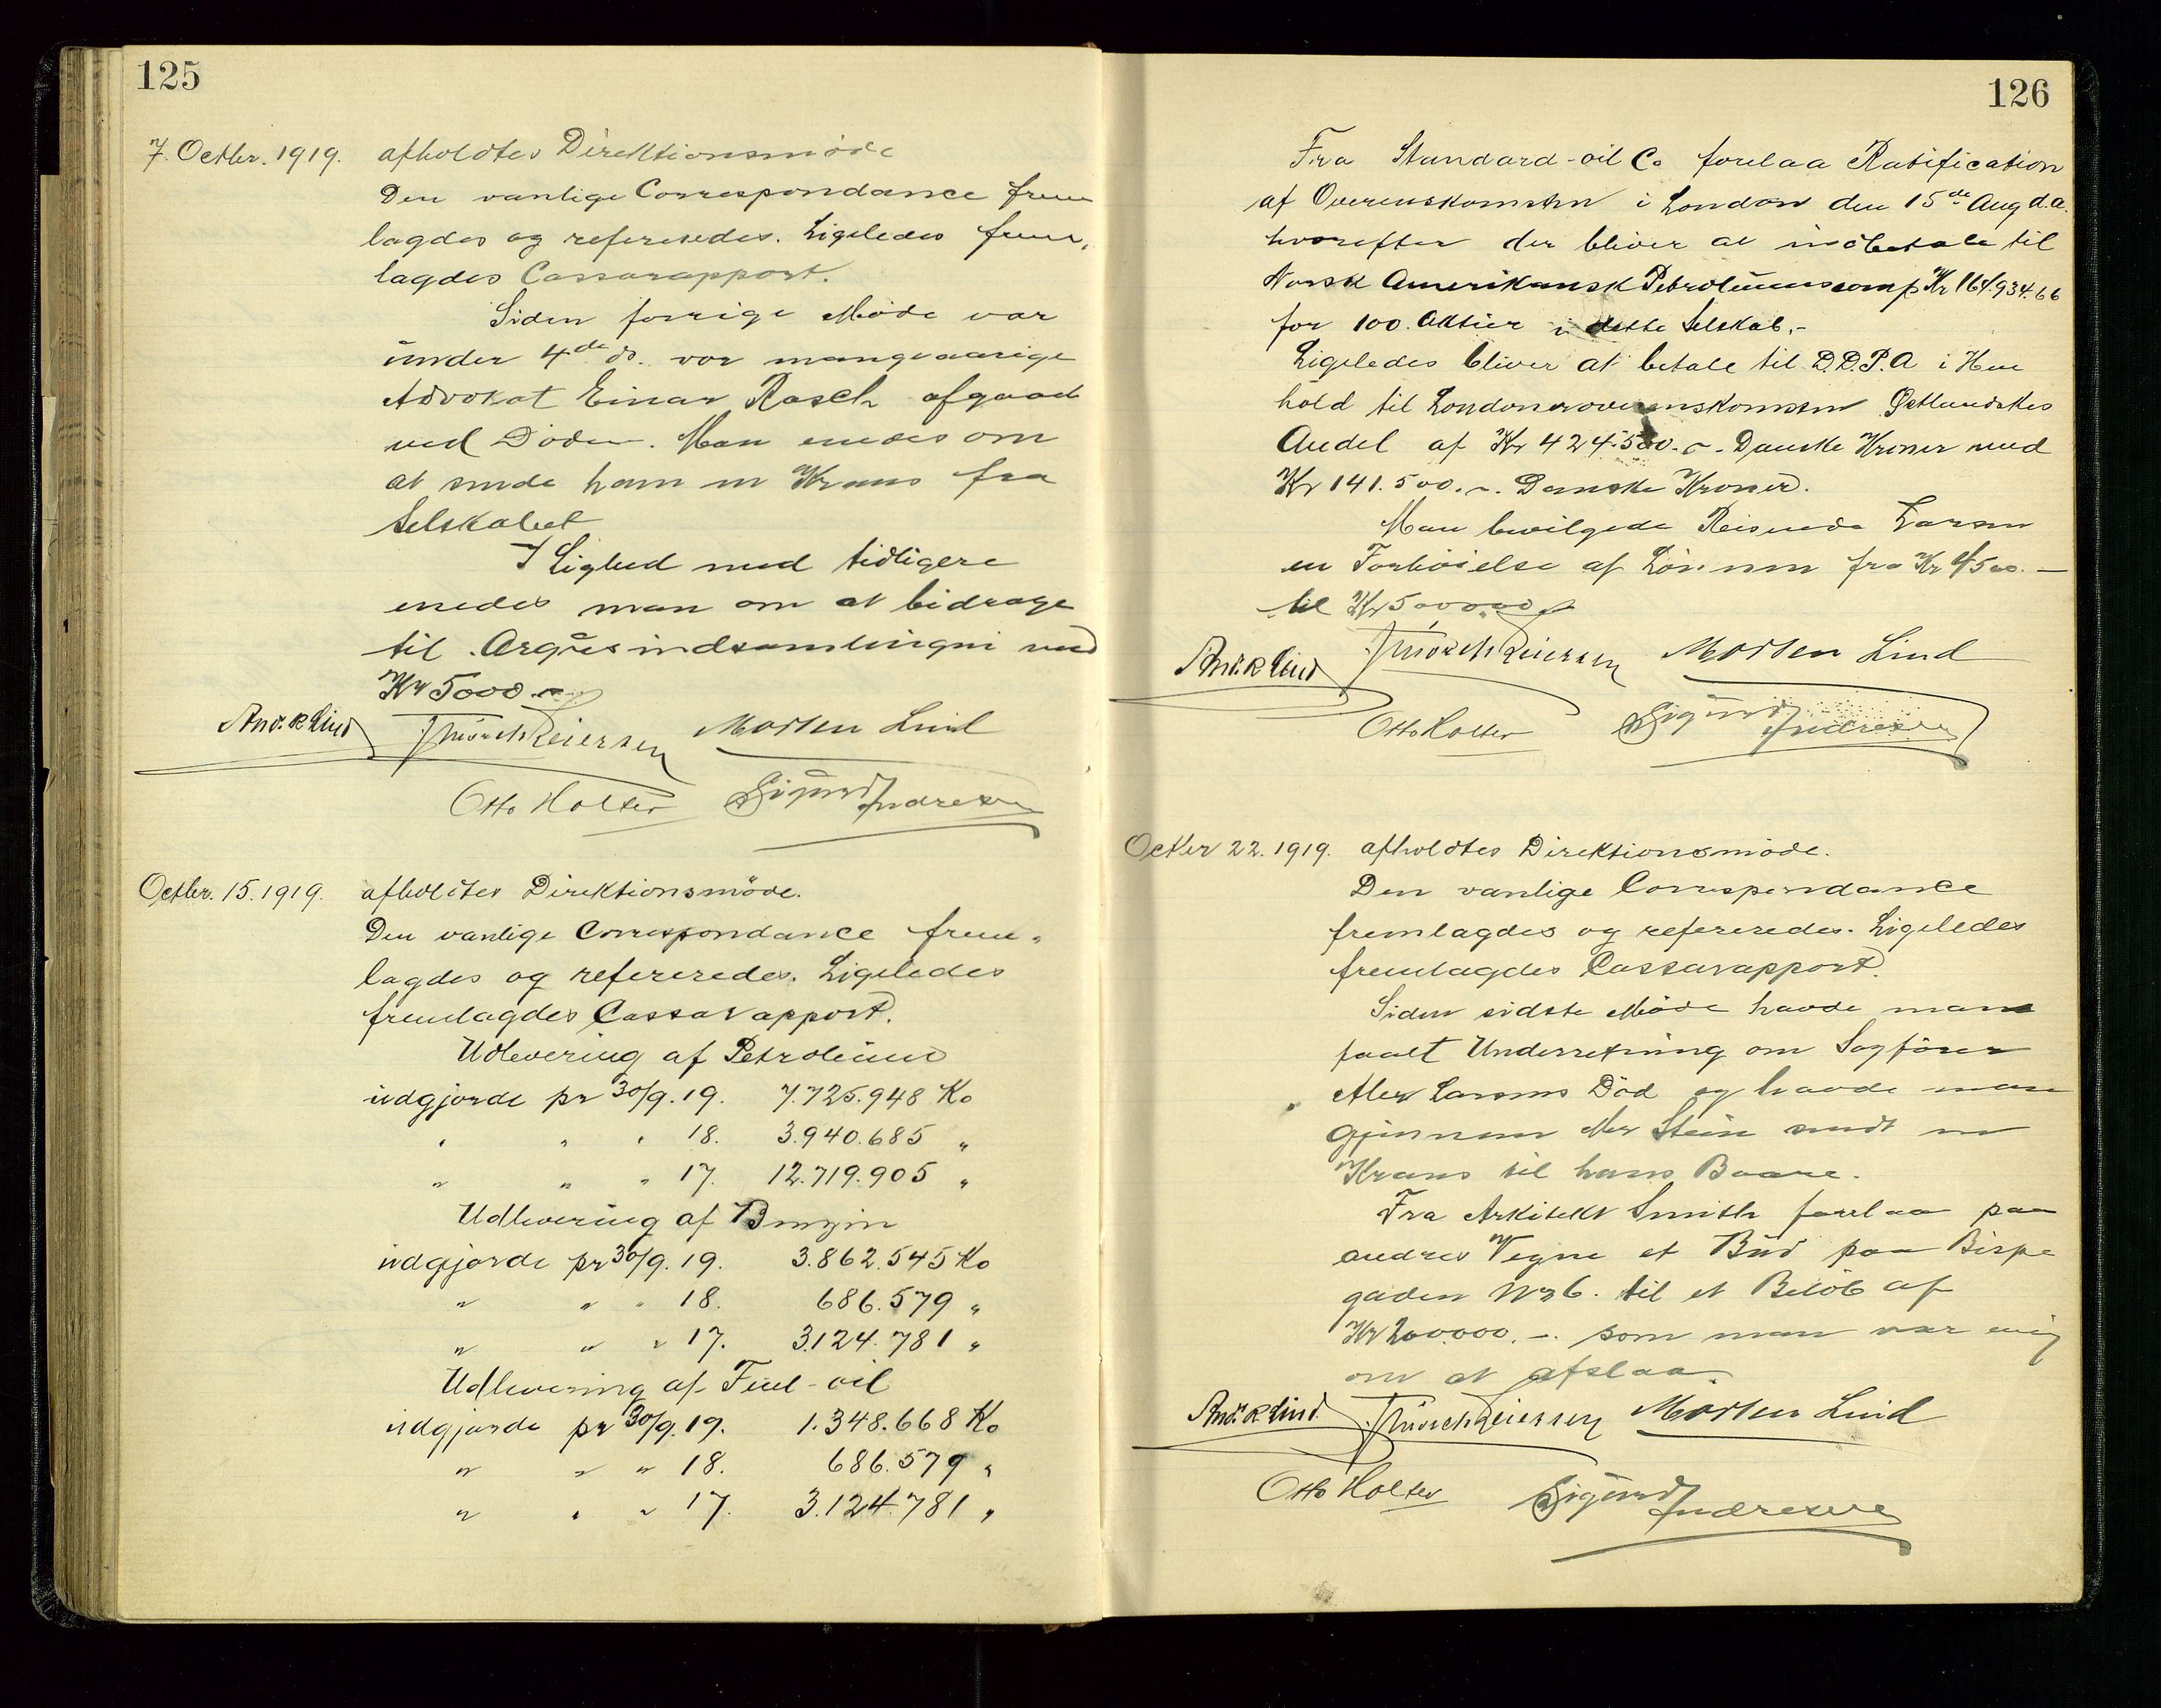 125
7. Octbr. 1919. afholdtes Direktionsmöde
Den vanlige Correspondance frem
lagdes og refereredes. Ligeledes frem,
lagdes Cassarapport.
Siden forrige Möde var
under 4de ds. vor mangeaarige
Advokat Einar Rasch afgaaet
ved Döden. Man enedes om
at sende ham en Krans fra
Selskabet
I Lighed med tidligere
enedes man om at bidrage
til Argus indsamlingen med
Kr 5000.-
And. R Lind Mörch Reiersen Morten Lind
Otto Holter Sigurd Andresen
Octbr. 15. 1919. afholdtes Direktionsmöde.
Den vanlige Correspondance frem„
lagdes og refereredes. Ligeledes
fremlagdes Cassarapport.
Udlevering af Petroleum
udgjorde pr 30/9. 19. 7.725.948 Ko
" " " 18. 3.940.685 "
" " " 17. 12.719.905 "
Udlevering af Benzin
udgjorde pr 30/9. 19. 3.862.545 Ko
" " " 18. 686.579 "
" " " 17. 3.124.781 "
Udlevering af Fuel-oil
udgjorde pr 30/9. 19. 1.348.668 Ko
" " " 18. 686.579 "
" " " 17. 3.124.781 "
126
Fra Standard-oil Co forelaa Ratification
af Overenskomsten i London den 15de Aug d.a.
hvorefter der bliver at indbetale til
Norsk Amerikansk Petroleumscomp Kr 164.934.66
for 100. Aktier i dette Selskab.-
Ligeledes bliver at betale til D.D.P.A i Hen
hold til Londoneroverenskomsten Östlandskes
Andel af Kr 424.500.- Danske Kroner med
Kr 141.500.-. Danske Kroner.
Man bevilgede Reisende Larsen
en Forhöielse af Lönnen fra Kr 4500.-
til Kr 5000.00
And. R Lind Mörch Reiersen Morten Lind
Otto Holter Sigurd Andresen
Octbr 22. 1919. afholdtes Direktionsmöde.
Den vanlige Correspondance
fremlagdes og refereredes. Ligeledes
fremlagdes Cassarapport.
Siden sidste Möde havde man
faaet Underretning om Sagförer
Alex Larsens Död og havde man
gjennem Mr Stein sendt en
Krans til hans Baare.
Fra Arkitekt Smith forelaa paa
andres Vegne et Bud paa Bispe
gaden No 6. til et Belöb af
Kr 200.000.-. som man var enig
om at afslaa.
And. R Lind. Mörch Reiersen Morten Lind
Otto Holter Sigurd Andresen